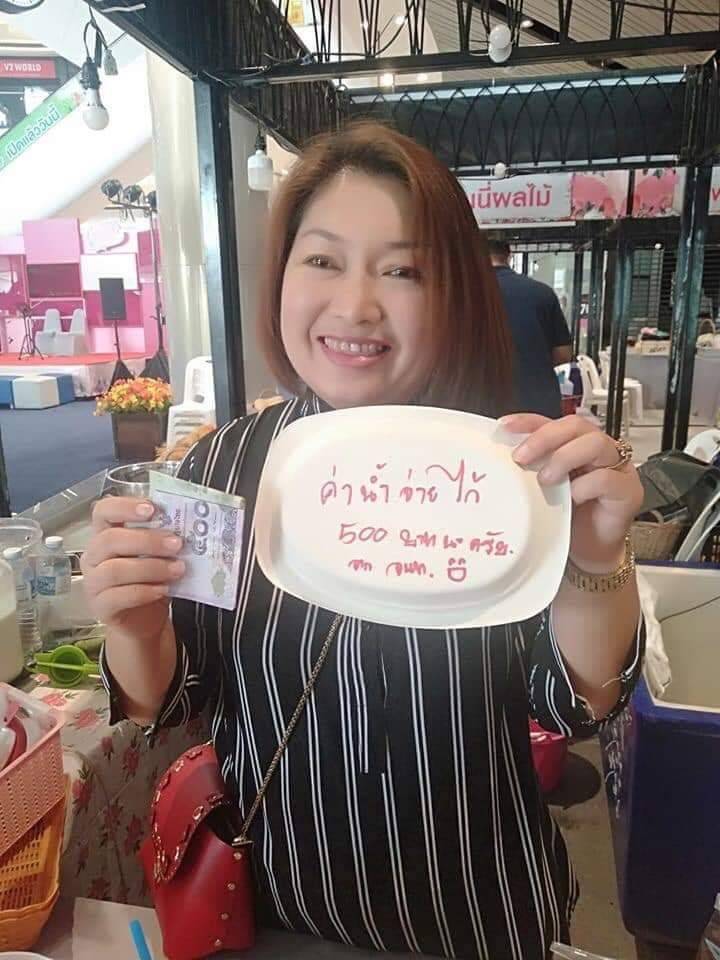 V2 WORLD
เปิดแล้ววันนี้
นี่ผลไม้
๕๐๐
ค่าน้ำจ่ายไก้
500 บาทนะครับ.
จาก